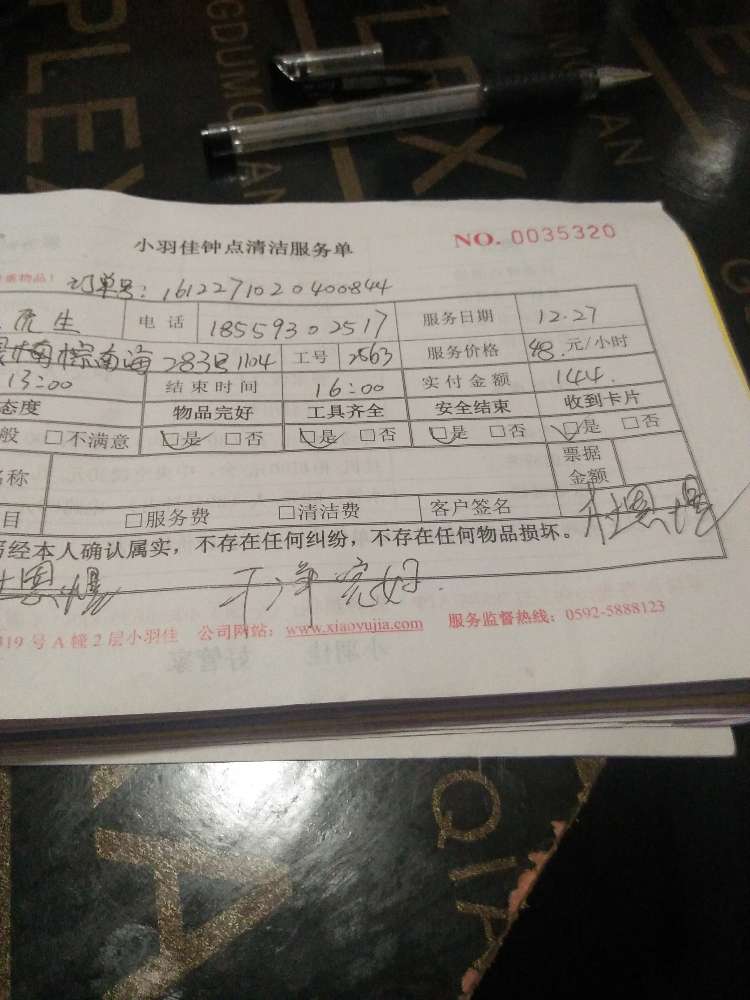 小羽佳钟点清洁服务单 NO. 0035320
物品!
订单号: 161227102040 0844
生 电话 18559302517 服务日期 12.27
南海 283号1104 工号 2563 服务价格 48 元/小时
13:00 结束时间 16:00 实付金额 144
态度 物品完好 工具齐全 安全结束 收到卡片
般 □不满意 ☑是 □否 ☑是 □否 ☑是 □否 ☑是 □否
名称 票据金额
目 □服务费 □清洁费 客户签名
经本人确认属实,不存在任何纠纷,不存在任何物品损坏。
干净完好
319号A幢2层小羽佳 公司网站: www.xiaoyujia.com 服务监督热线: 0592-5888123
PLEX